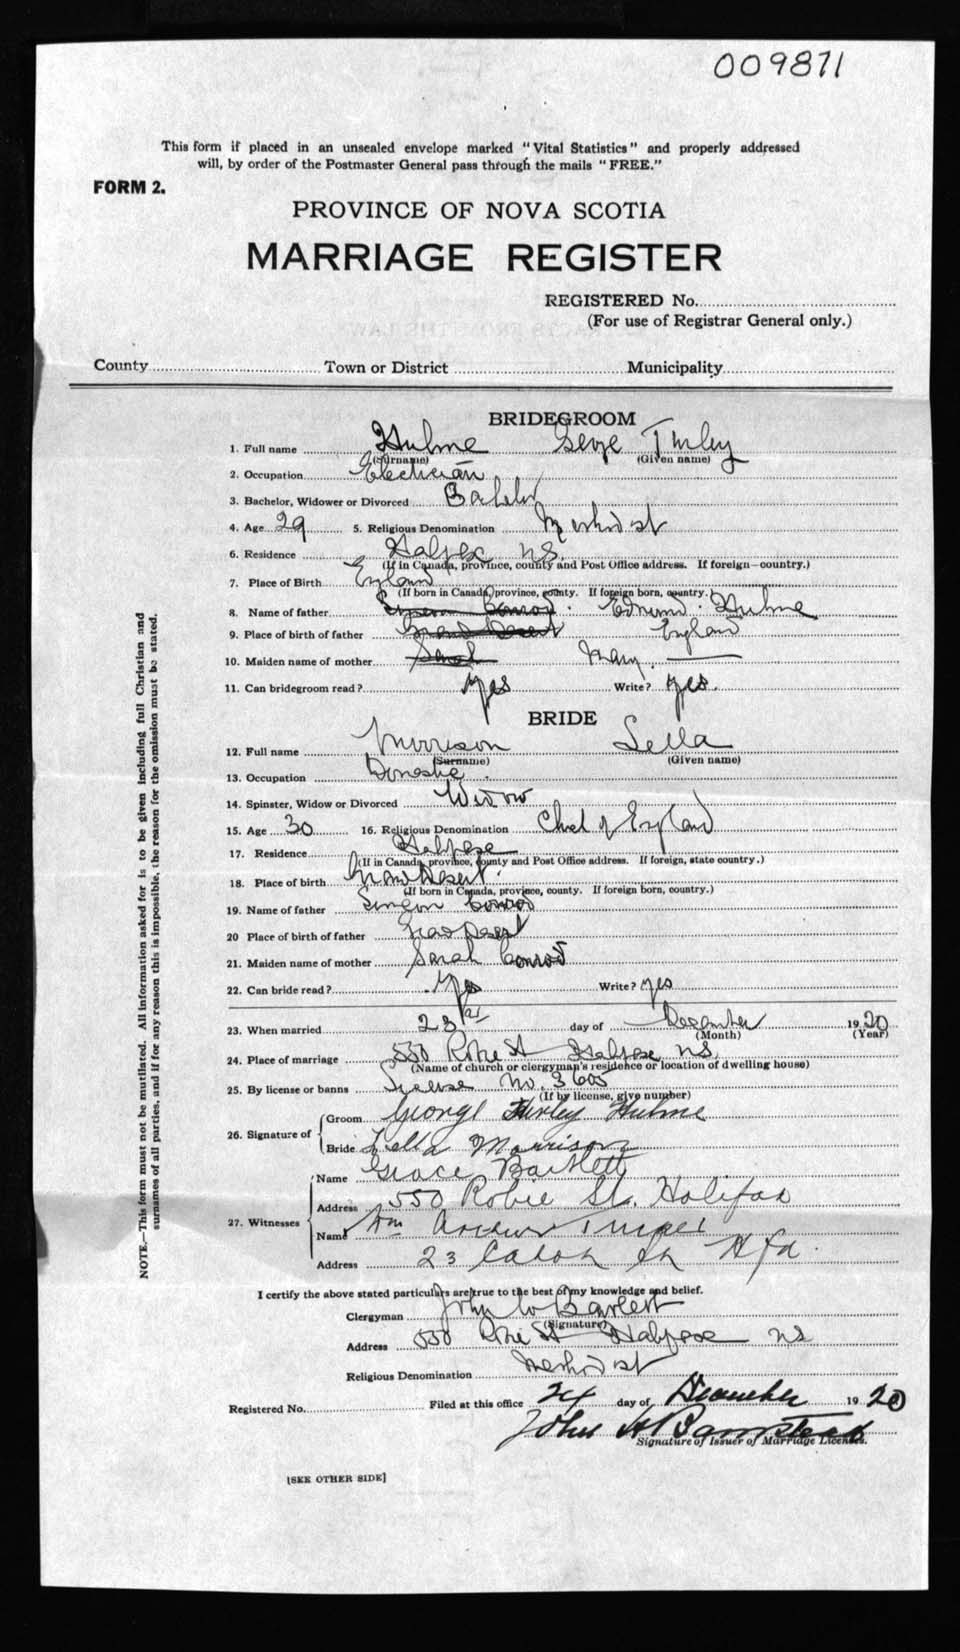 009871
This form if placed in an unsealed envelope marked "Vital Statistics" and properly addressed
will, by order of the Postmaster General pass through the mails "FREE."
FORM 2.
PROVINCE OF NOVA SCOTIA
MARRIAGE REGISTER
REGISTERED No.
(For use of Registrar General only.)
County Town or District Municipality
BRIDEGROOM
1. Full name Hulme George
(Surname) (Given name)
2. Occupation Electrician
3. Bachelor, Widower or Divorced Bachelor
4. Age 29 5. Religious Denomination Methodist
6. Residence Halifax N.S.
(If in Canada, province, county and Post Office address. If foreign—country.)
7. Place of Birth England
(If born in Canada, province, county. If foreign born, country.)
8. Name of father Simeon Conrod. Edmund Hulme
9. Place of birth of father Grand Desert England
10. Maiden name of mother Sarah Mary.
11. Can bridegroom read? Yes Write? Yes.
BRIDE
12. Full name Morrison Lella
(Surname) (Given name)
13. Occupation Domestic.
14. Spinster, Widow or Divorced Widow
15. Age 30 16. Religious Denomination Church of England
17. Residence Halifax
(If in Canada, province, county and Post Office address. If foreign, state country.)
18. Place of birth Grand Desert.
(If born in Canada, province, county. If foreign born, country.)
19. Name of father Simeon Conrod
20 Place of birth of father Grand Desert
21. Maiden name of mother Sarah Conrod
22. Can bride read? Yes Write? Yes
23. When married 23rd day of December 1920
(Month) (Year)
24. Place of marriage 550 Robie St Halifax N.S.
(Name of church or clergyman's residence or location of dwelling house)
25. By license or banns License No. 3605
(If by license, give number)
26. Signature of Groom George Hulme
Bride Lella Morrison
27. Witnesses Name Grace Bartlett
Address 550 Robie St. Halifax
Name Wm Andrew
Address 23 St Hfx.
I certify the above stated particulars are true to the best of my knowledge and belief.
Clergyman John W Bartlett
(Signature)
Address 550 Robie St Halifax N.S
Religious Denomination Methodist
Registered No. Filed at this office 24 day of December 1920
John H Barnstead
Signature of Issuer of Marriage Licenses.
[SEE OTHER SIDE]
NOTE.—This form must not be mutilated. All information asked for is to be given including full Christian and
surnames of all parties, and if for any reason this is impossible, the reason for the omission must be stated.